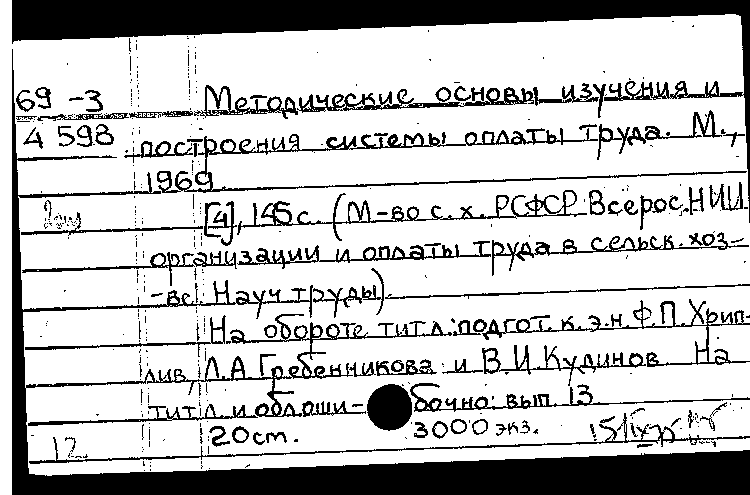 69-3 Методические основы изучения и
4 598 построения системы оплаты труда. М.,
1969.
[4], 145 с. (М-во с. х. РСФСР. Всерос. НИИ
организации и оплаты труда в сельск. хоз-
-ве. Науч. труды).
На обороте тит. л.: подгот. к. э. н. Ф. П. Хрип-
лив, Л. А. Гребенникова и В. И. Кудинов. На
тит. л. и облоши- бочно: вып. 13
12 20 см. 3000 экз. 15/IX-75